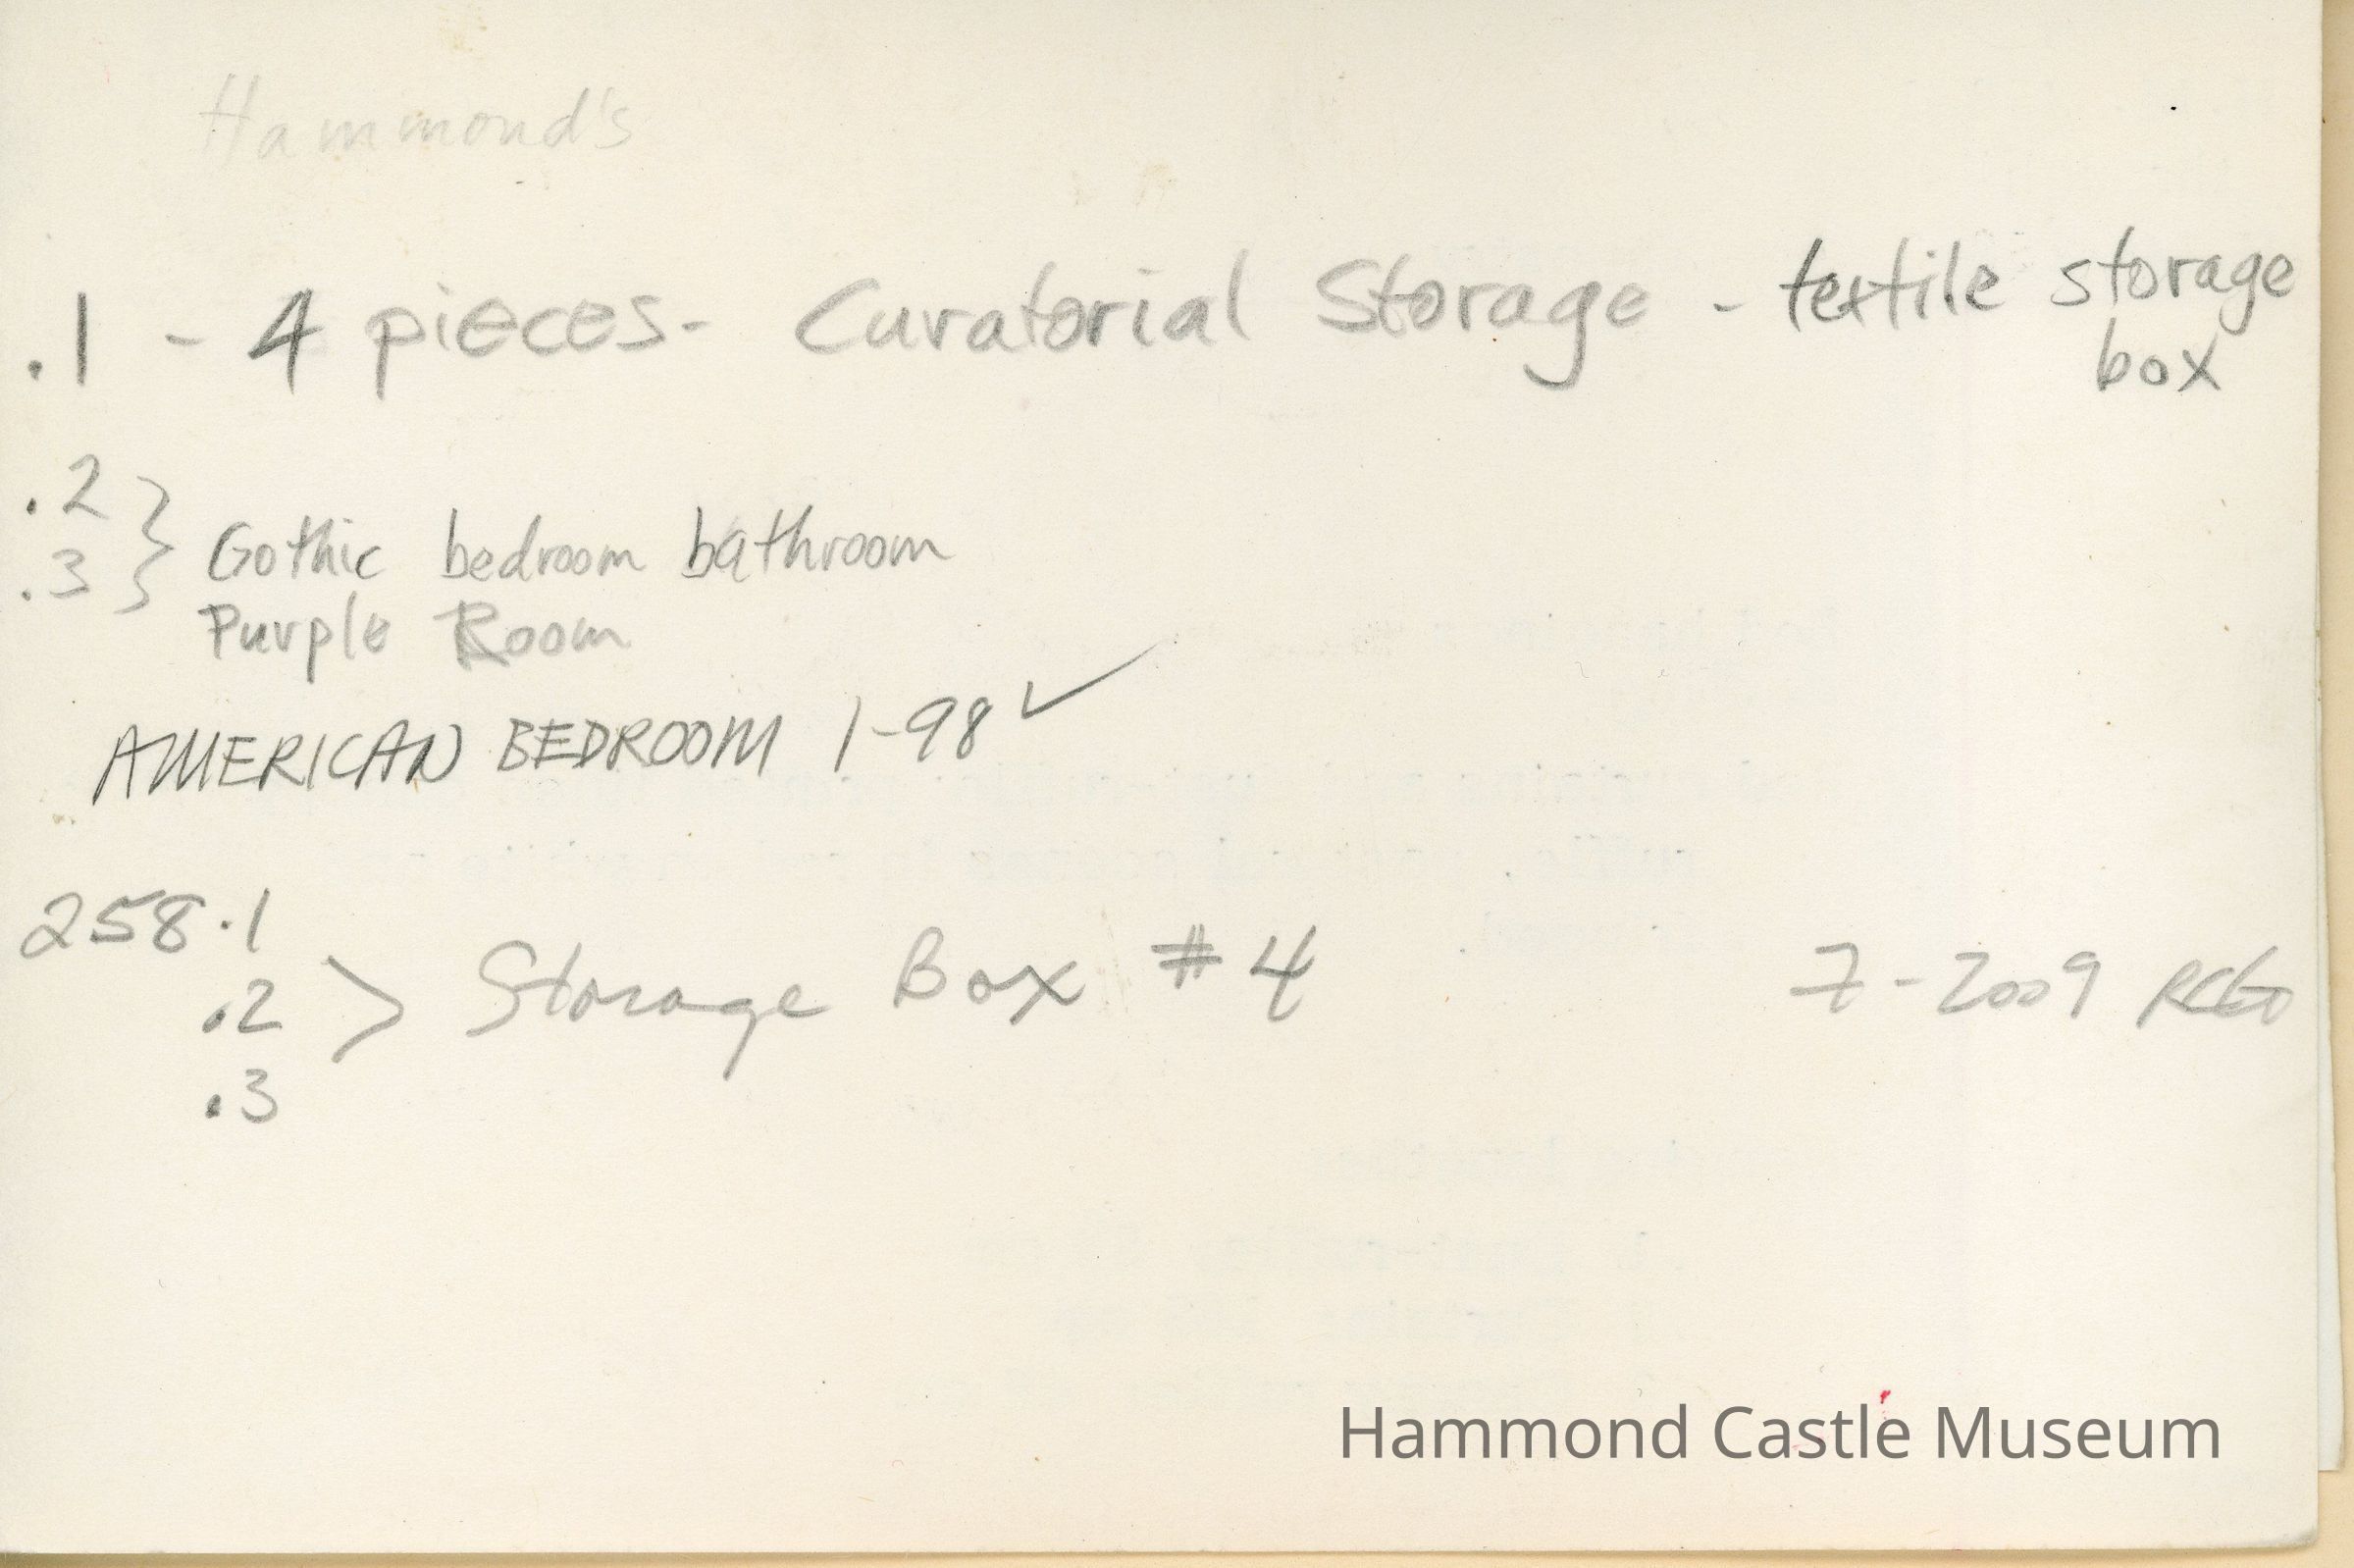 Hammond's
.1 - 4 pieces - Curatorial Storage - textile storage
box
.2
.3 } Gothic bedroom bathroom
Purple Room
AMERICAN BEDROOM 1-98 ✓
258.1
.2 > Storage Box #4 7-2009
.3
Hammond Castle Museum